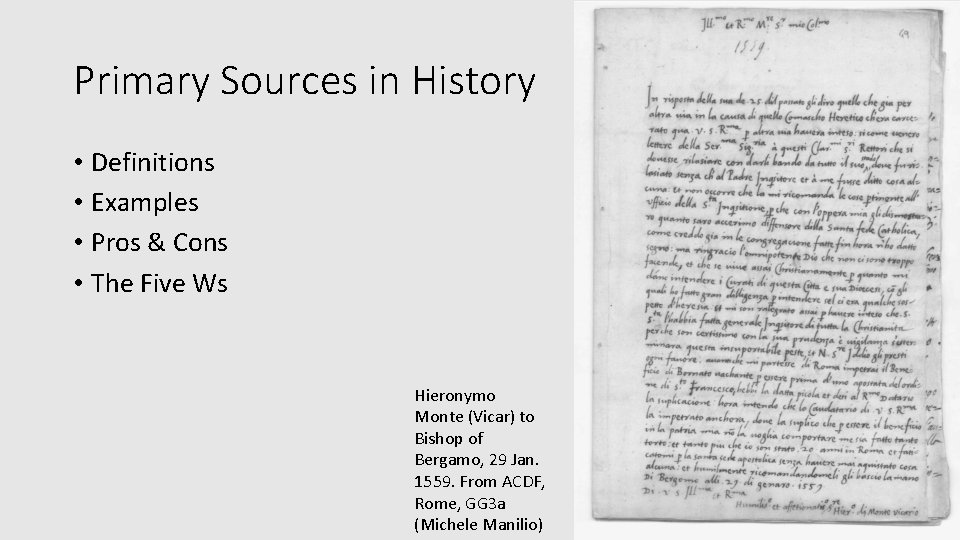 Primary Sources in History
• Definitions
• Examples
• Pros & Cons
• The Five Ws
Hieronymo
Monte (Vicar) to
Bishop of
Bergamo, 29 Jan.
1559. From ACDF,
Rome, GG3a
(Michele Manilio)
Ill.mo et R.mo
1559.
In risposta della sua de 25 del passato gli diro quello che gia per
altra via in la causa di quello Comascho Heretico ch'era carce-
rato qua. V. S. R.ma p altra via havera inteso: si come venero
lettere della Ser.ma Sig.ria à questi Clar.mi Rettori che si
dovesse rilasiare con darli bando da tutto il suo dove fu ri-
lasiato senza ch'al Padre Inqsitore et à me fusse ditto cosa al-
cuna: et non occorre che la mi ricomanda le cose ptinente all'
ufficio della S.ta Inqsitione, pche con l'oppera mia gli dismostra-
ro quanto saro accerimo diffensore della Santa fede Catholica,
come creddo gia in le congregacione fatte fin hora n'ho datto
segno: ma ringracio l'omnipotente Dio che non ci sono troppo
facende, et che se vive assai Christianamente p quanto mi
dano intendere i Curati di questa Citta e sua Diocesi, gli
quali ho fatto gran dilligenza p intendere sel ci era qualche sos-
petto d'heresia. et mi son ralegrato assai p havere inteso che S.
S.ta l'habbia fatta generale Inqsitore di tutta la Christianita
perche son certissimo con la sua prudenza è vigilanza
questa insuportabile peste, et N. S.re Iddio gli presti
ogni favore. partesse di Roma impetrai il Bene-
ficio di Bornato vachante p essere prima d'uno apostata del ordi-
ne di S.to Francesco, la datta picola et desi al R.mo Datario
la suplicacione hora intendo che lo Caudatario di V. S. R.ma
la impetrato anchora, dove la suplico che p essere il beneficio
in la patria mia no la voglia comportare me sia fatto tanto
torto: et tanto piu che io son stato 20 anni in Roma et fati-
catomi p la santa sede apostolica senza havere mai aquistato cosa
alcuna. et humilmente ricomandandomeli gli bascio la mano
Di Bergamo alli 29 di genaro. 1559
Di V. S. Ill.ma et R.ma
Humil.o et affetionato di Monte vicario